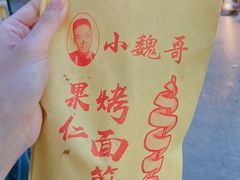 小魏哥
果仁
烤面筋